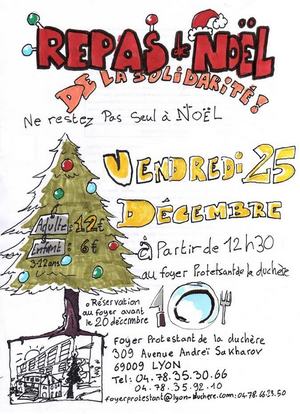 REPAS de NOËL
DE LA SOLIDARITÉ!
Ne restez Pas Seul à NOËL
VENDREDI 25
DÉCEMBRE
Adulte : 12€
Enfant : 6€
3-12ans
à Partir de 12h30
au foyer Protestant de la duchère
• Réservation
au foyer avant
le 20 décembre
Foyer Protestant de la duchère
309 Avenue Andreï Sakharov
69009 LYON
Tel: 04.78.35.30.66
04.78.35.92.10
foyerprotestant@lyon-duchere.com